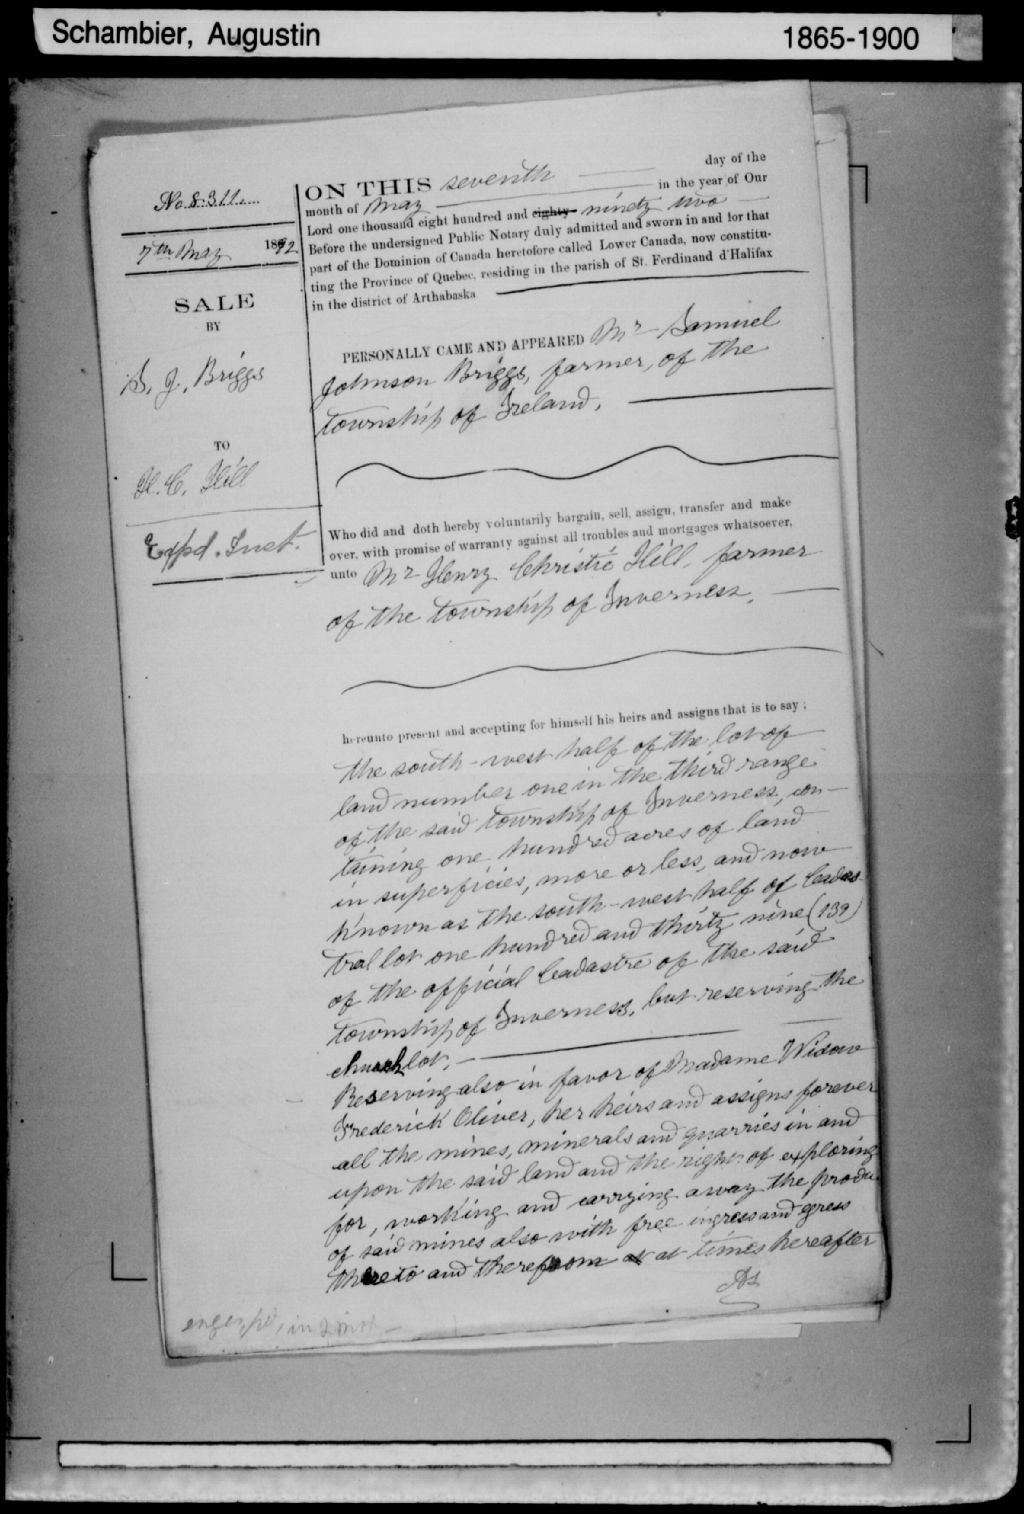 Schambier, Augustin 1865-1900
No. 8.311.
7th May 1892
SALE
BY
S. J. Briggs
TO
H. C. Hill
Expd. Inst.
ON THIS seventh day of the
month of May in the year of Our
Lord one thousand eight hundred and eighty ninety two
Before the undersigned Public Notary duly admitted and sworn in and for that
part of the Dominion of Canada heretofore called Lower Canada, now constitu-
ting the Province of Quebec, residing in the parish of St. Ferdinand d'Halifax
in the district of Arthabaska
PERSONALLY CAME AND APPEARED Mr Samuel
Johnson Briggs, farmer, of the
township of Ireland.
Who did and doth hereby voluntarily bargain, sell, assign, transfer and make
over, with promise of warranty against all troubles and mortgages whatsoever,
unto Mr Henry Christie Hill, farmer
of the township of Inverness.
hereunto present and accepting for himself his heirs and assigns that is to say ;
the south-west half of the lot of
land number one in the third range
of the said township of Inverness, con-
taining one hundred acres of land
in superficies, more or less, and now
known as the south-west half of Cadas
tral lot one hundred and thirty nine (139)
of the official Cadastre of the said
township of Inverness, but reserving the
church lot.
Reserving also in favor of Madame Widow
Frederick Oliver, her heirs and assigns forever
all the mines, minerals and quarries in and
upon the said land and the right of exploring
for, working and carrying away the produ
of said mines also with free ingress and egress
thereto and therefrom at times hereafter